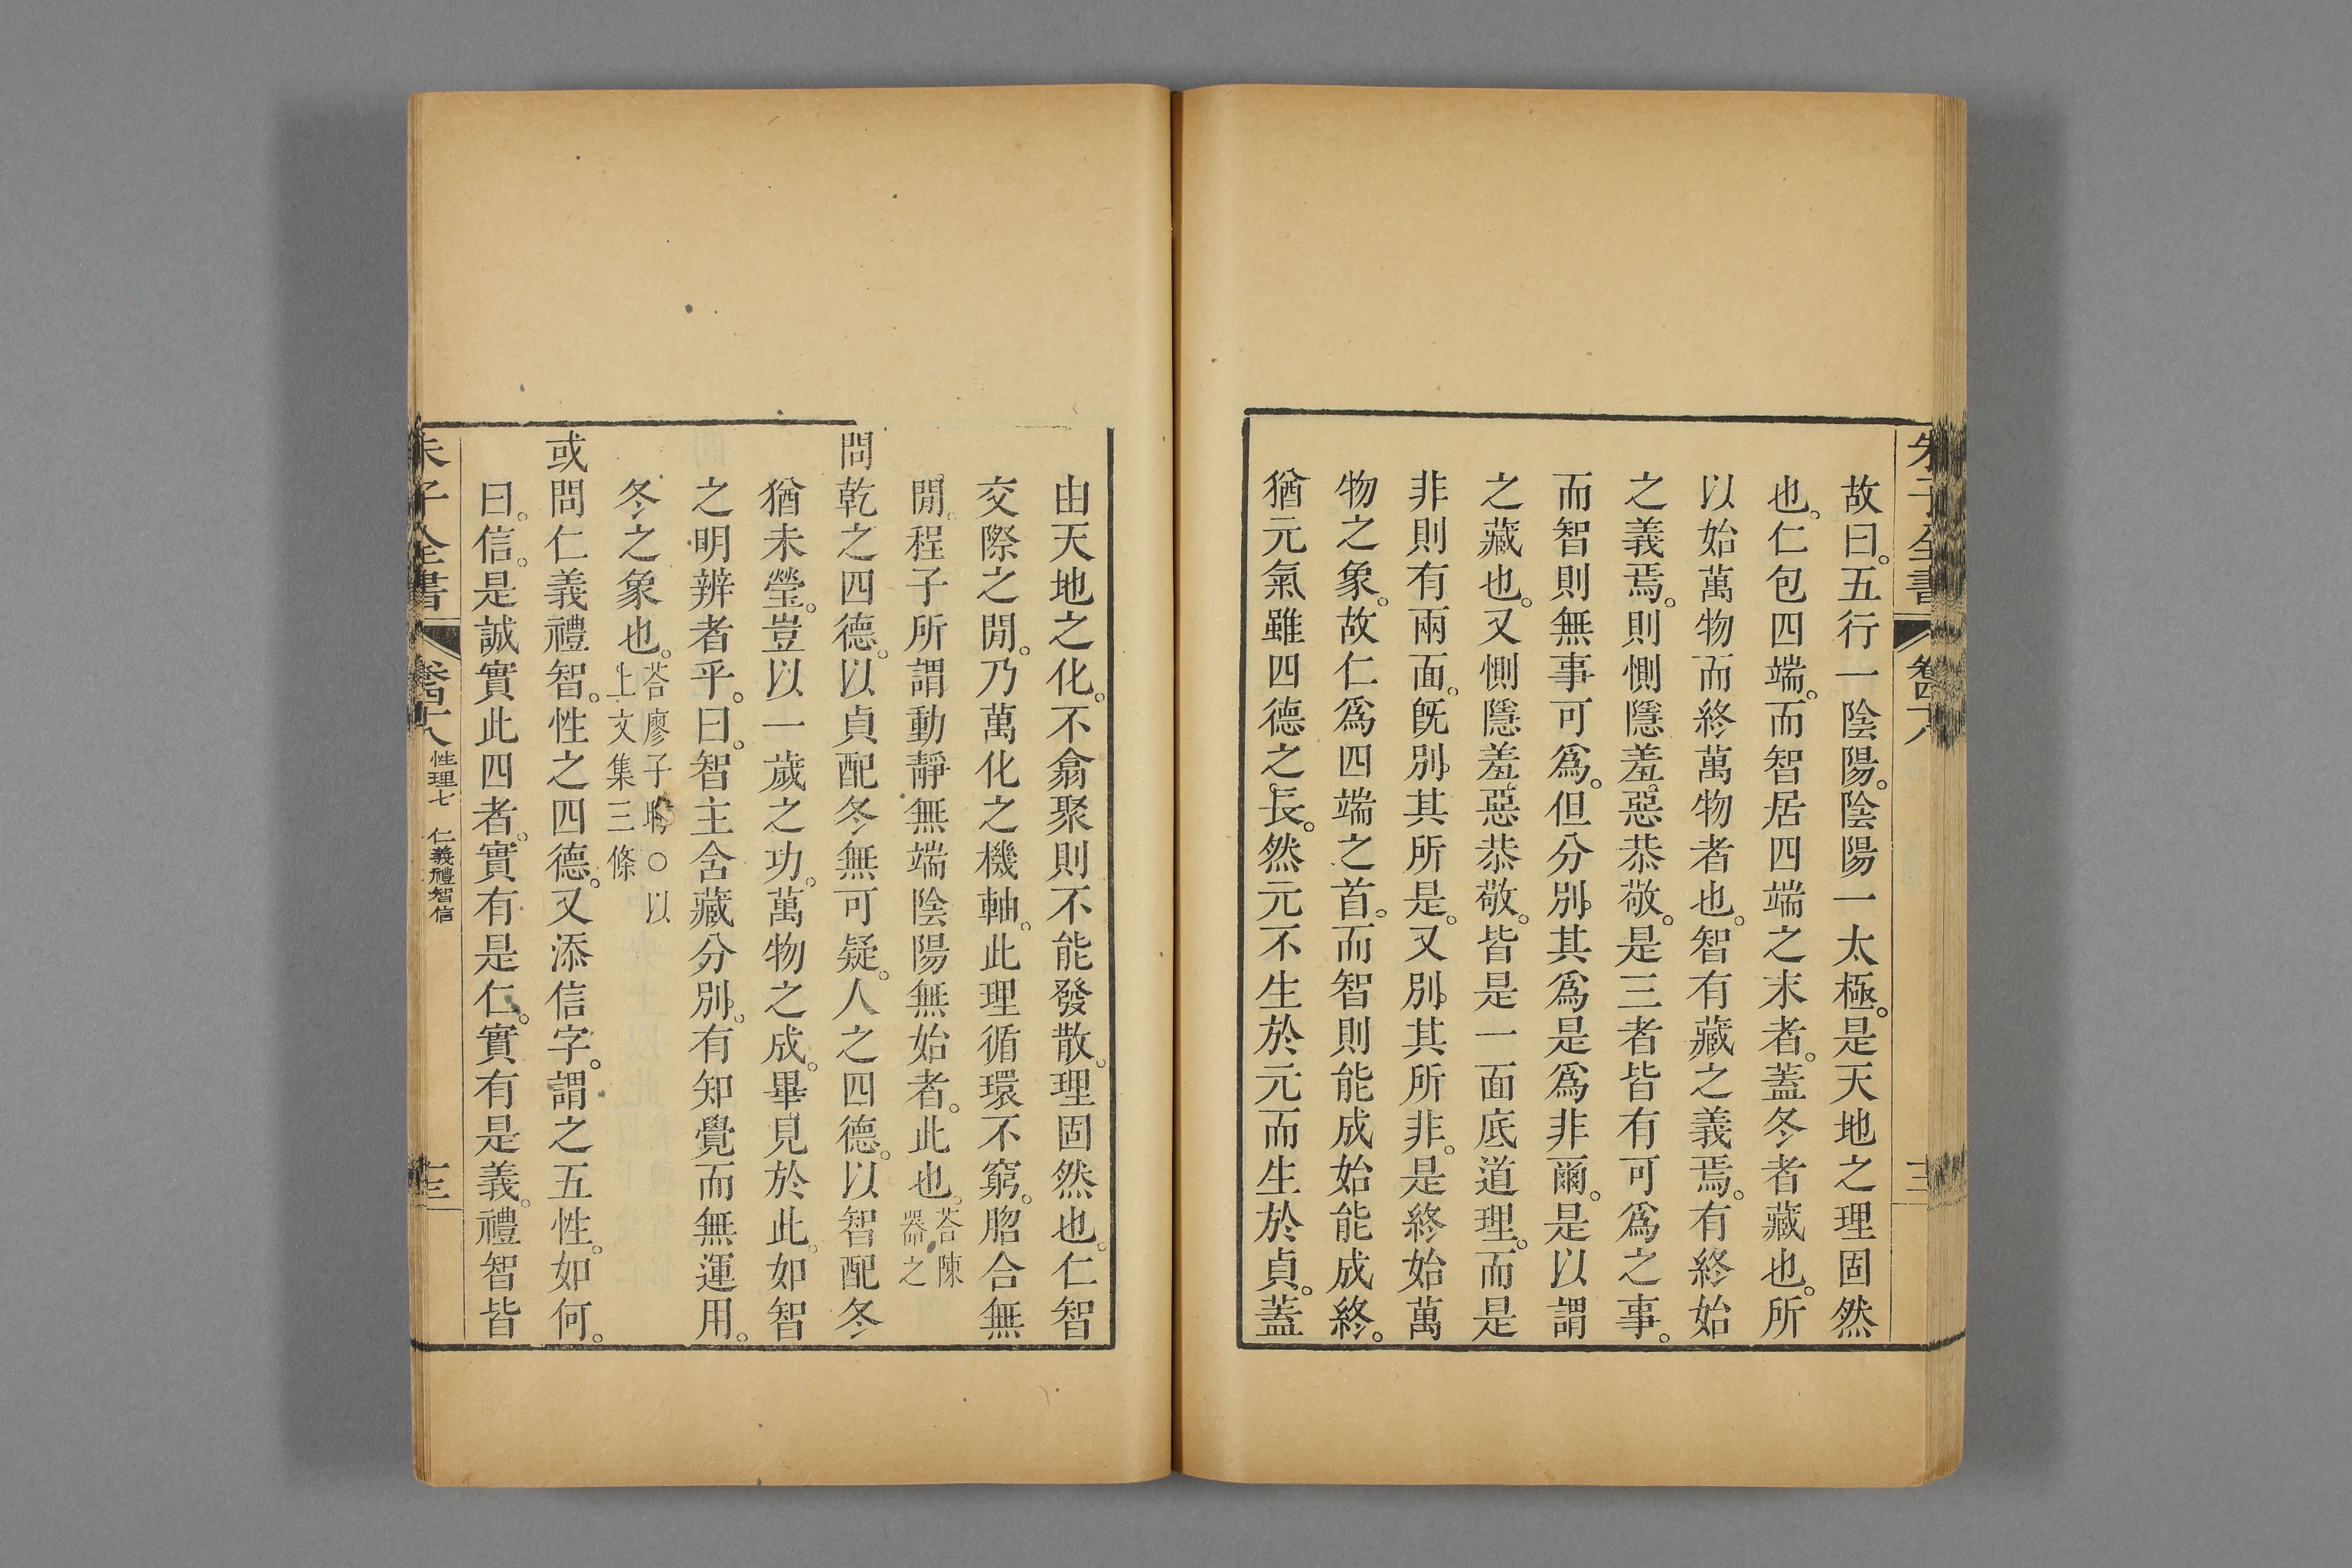 朱子全書 卷四十八 十三
故曰。五行一陰陽。陰陽一太極。是天地之理固然
也。仁包四端。而智居四端之末者。蓋冬者藏也。所
以始萬物而終萬物者也。智有藏之義焉。有終始
之義焉。則惻隱羞惡恭敬。是三者皆有可爲之事。
而智則無事可爲。但分別其爲是爲非爾。是以謂
之藏也。又惻隱羞惡恭敬。皆是一面底道理。而是
非則有兩面。旣別其所是。又別其所非。是終始萬
物之象。故仁爲四端之首。而智則能成始能成終。
猶元氣雖四德之長。然元不生於元而生於貞。蓋
由天地之化。不翕聚則不能發散。理固然也。仁智
交際之閒。乃萬化之機軸。此理循環不窮。脗合無
閒。程子所謂動靜無端陰陽無始者。此也。荅陳器之
問乾之四德。以貞配冬無可疑。人之四德。以智配冬
猶未瑩。豈以一歲之功。萬物之成。畢見於此。如智
之明辨者乎。曰。智主含藏分別。有知覺而無運用。
冬之象也。荅廖子晦○以上文集三條
或問仁義禮智。性之四德。又添信字。謂之五性。如何。
曰。信。是誠實此四者。實有是仁。實有是義。禮智皆
朱子全書 卷四十八 性理七 仁義禮智信 十三